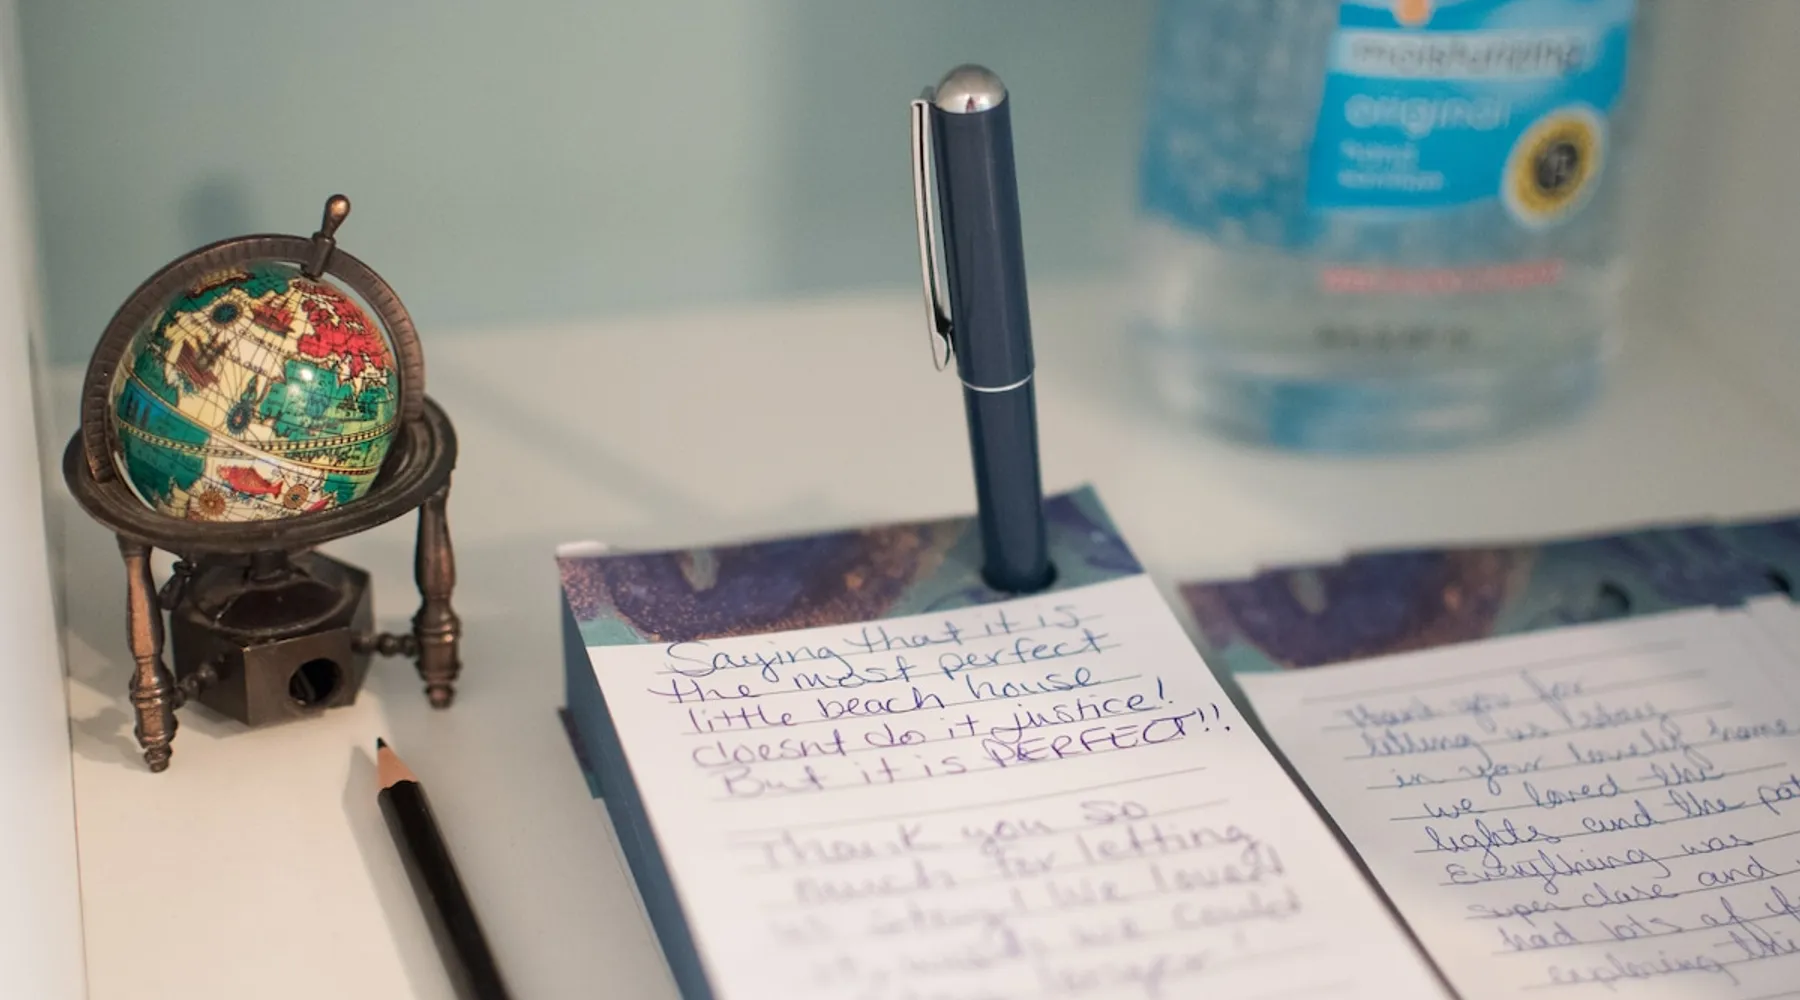 moisturizing
original
Saying that it is
the most perfect
little beach house
doesnt do it justice!
But it is PERFECT!!
Thank you so
much for letting
us stay! We loved
it, we could
longer!
Thank you for
letting us stay
in your lovely home
we loved the
lights and the pat
Everything was
super close and
had lots of f
exploring thi